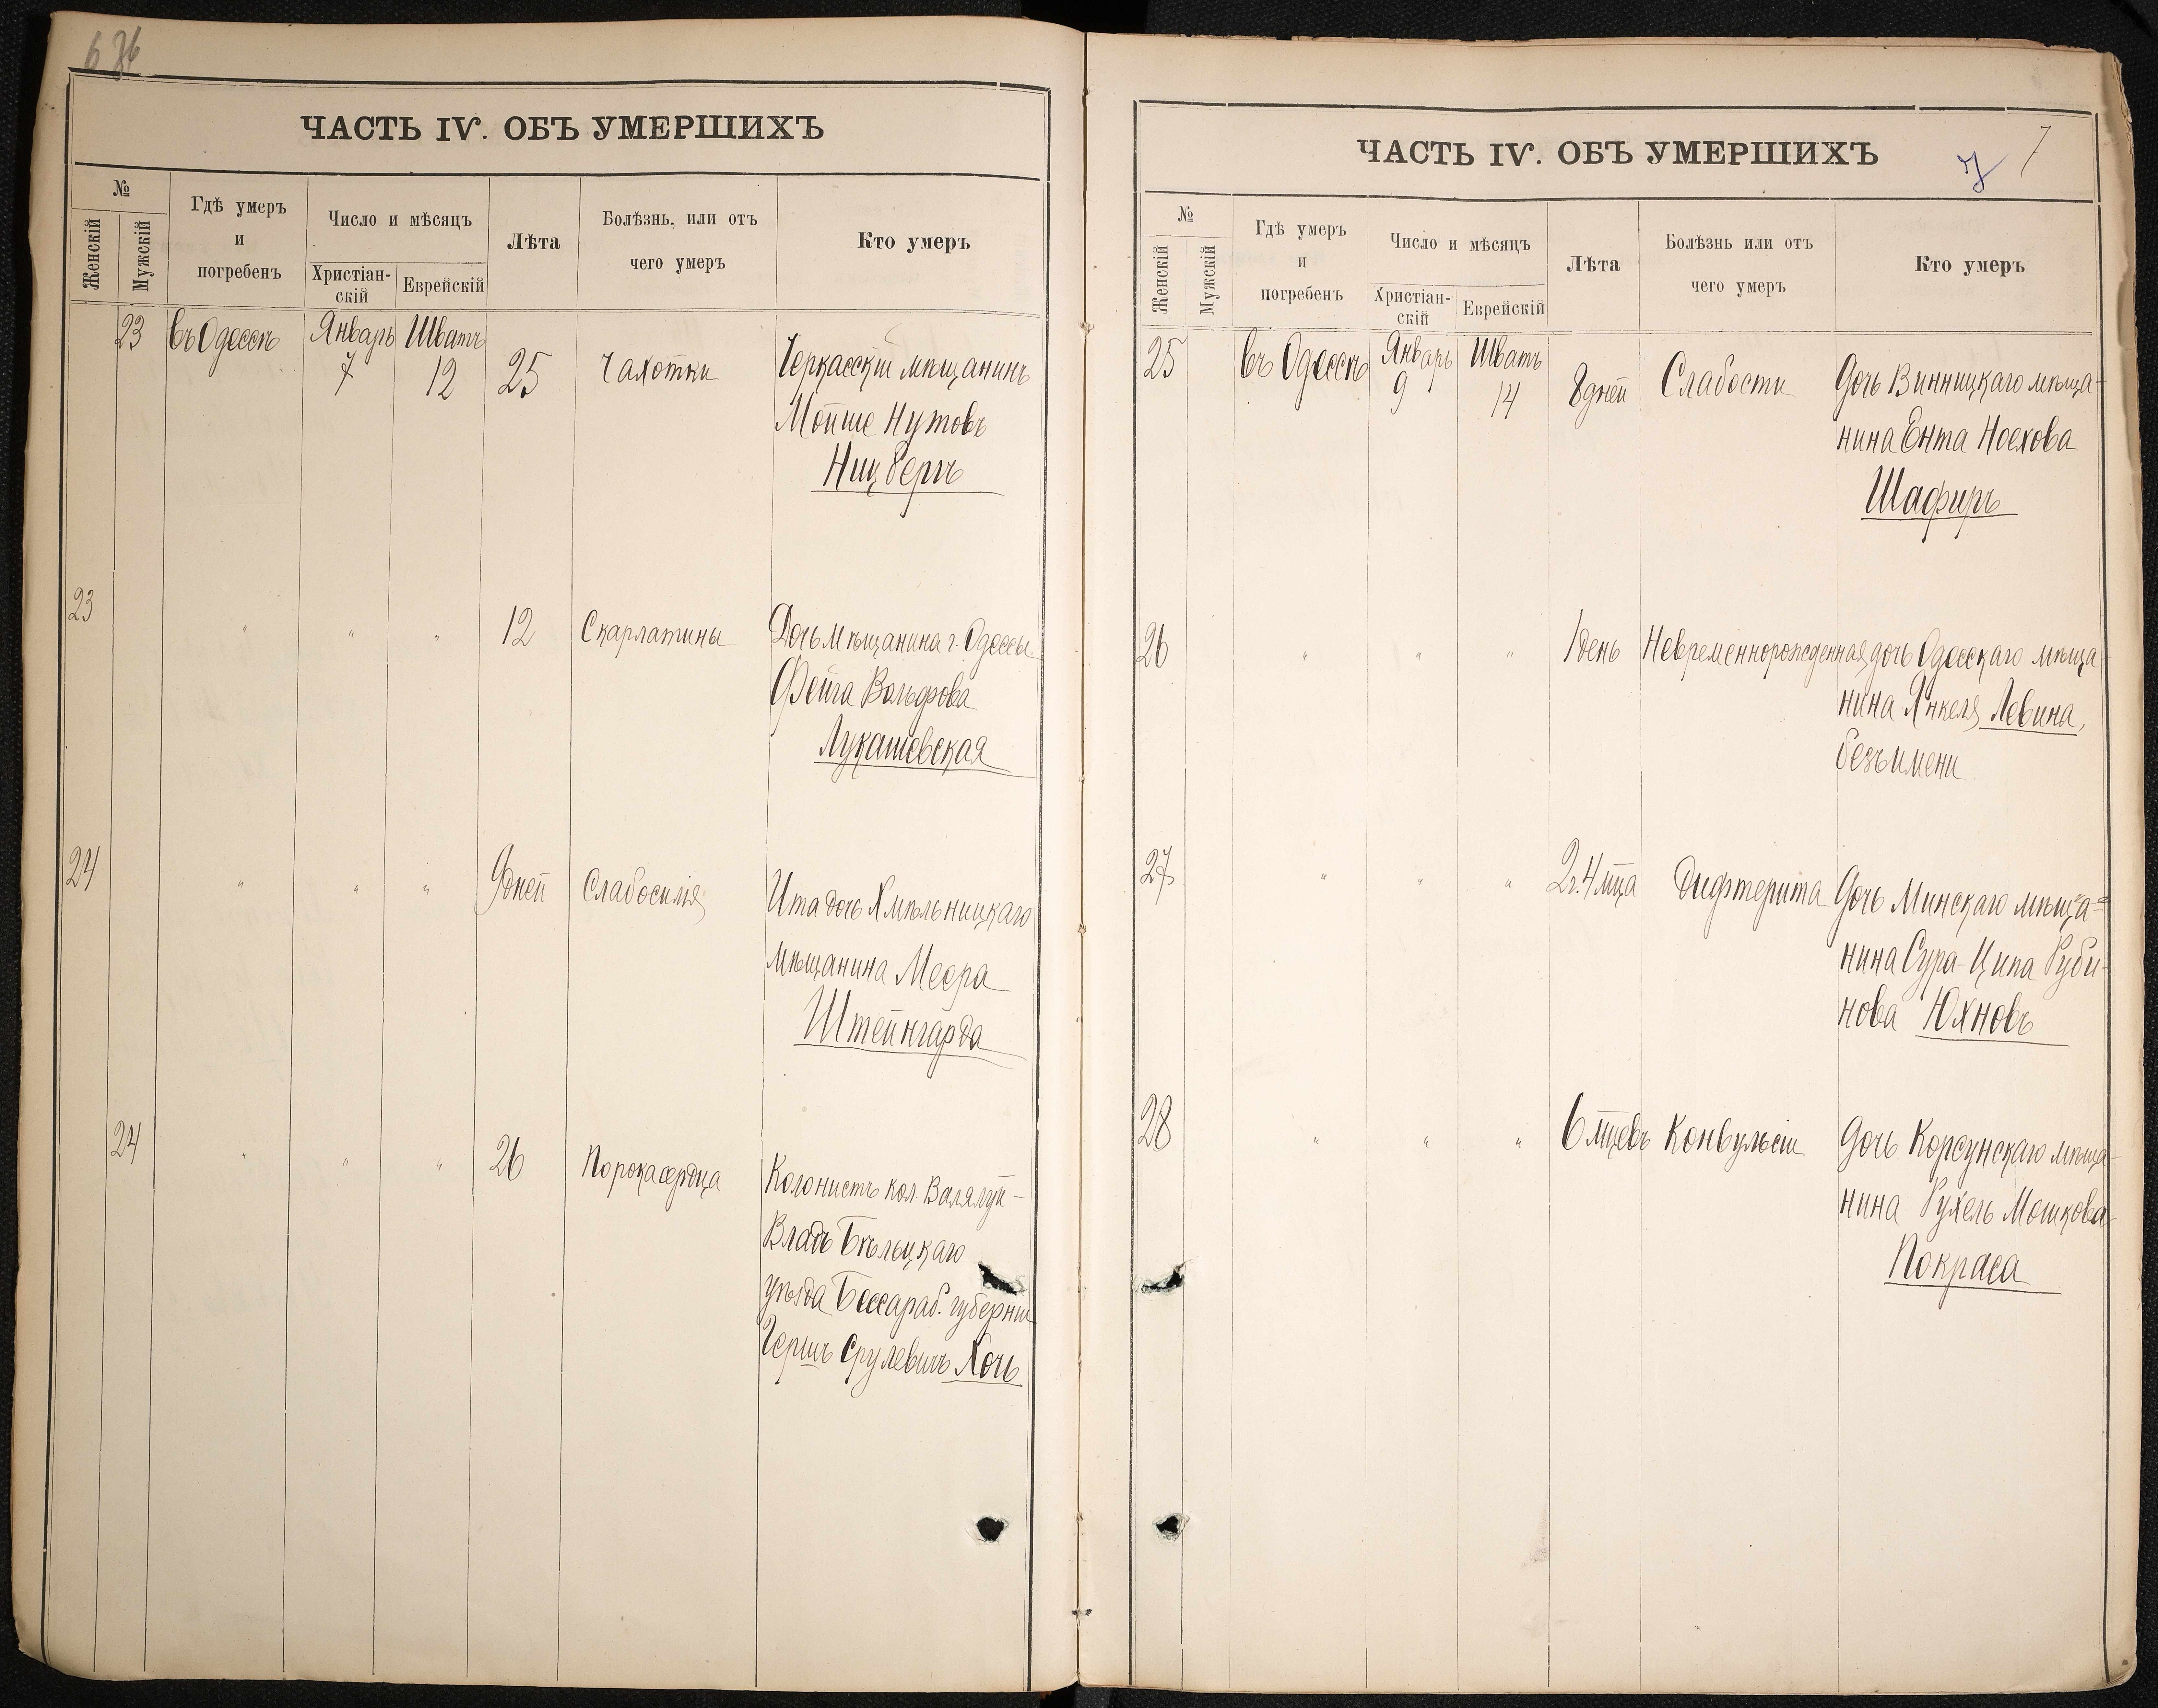 6
ЧАСТЬ IV. ОБЪ УМЕРШИХЪ
№
Женскій
Мужскій
Гдѣ умеръ
и
погребенъ
Число и мѣсяцъ
Христіан-
скій
Еврейскій
Лѣта
Болѣзнь, или отъ
чего умеръ
Кто умеръ
23 въ Одессѣ Январь 7 Шватъ 12 25 Чахотки Черкасскій мѣщанинъ
Мойше Нутовъ
Ницбергъ
23 " " " 12 Скарлатины Дочь мѣщанина г. Одессы
Фейга Вольфова
Лукашевская
24 " " " 9 дней Слабосилія Ита дочь Хмѣльницкаго
мѣщанина Меера
Штейнгарда
24 " " " 26 Порока сердца Колонистъ кол. Валялуй-
Владъ Бѣльцкаго
уѣзда Бессараб. губерніи
Гершъ Срулевичъ Хочь
7 7
ЧАСТЬ IV. ОБЪ УМЕРШИХЪ
№
Женскій
Мужскій
Гдѣ умеръ
и
погребенъ
Число и мѣсяцъ
Христіан-
скій
Еврейскій
Лѣта
Болѣзнь или отъ
чего умеръ
Кто умеръ
25 въ Одессѣ Январь 9 Шватъ 14 8 дней Слабости Дочь Винницкаго мѣща-
нина Ента Ноехова
Шафиръ
26 " " " 1 день Невременнорожденная дочь Одесскаго мѣща-
нина Янкеля Левина,
безъ имени
27 " " " 2 г. 4 мца Дифтерита Дочь Минскаго мѣща-
нина Сура-Ципа Руби-
нова Юхновъ
28 " " " 6 мцевъ Конвульсіи Дочь Корсунскаго мѣща-
нина Рухель Мошкова
Покраса